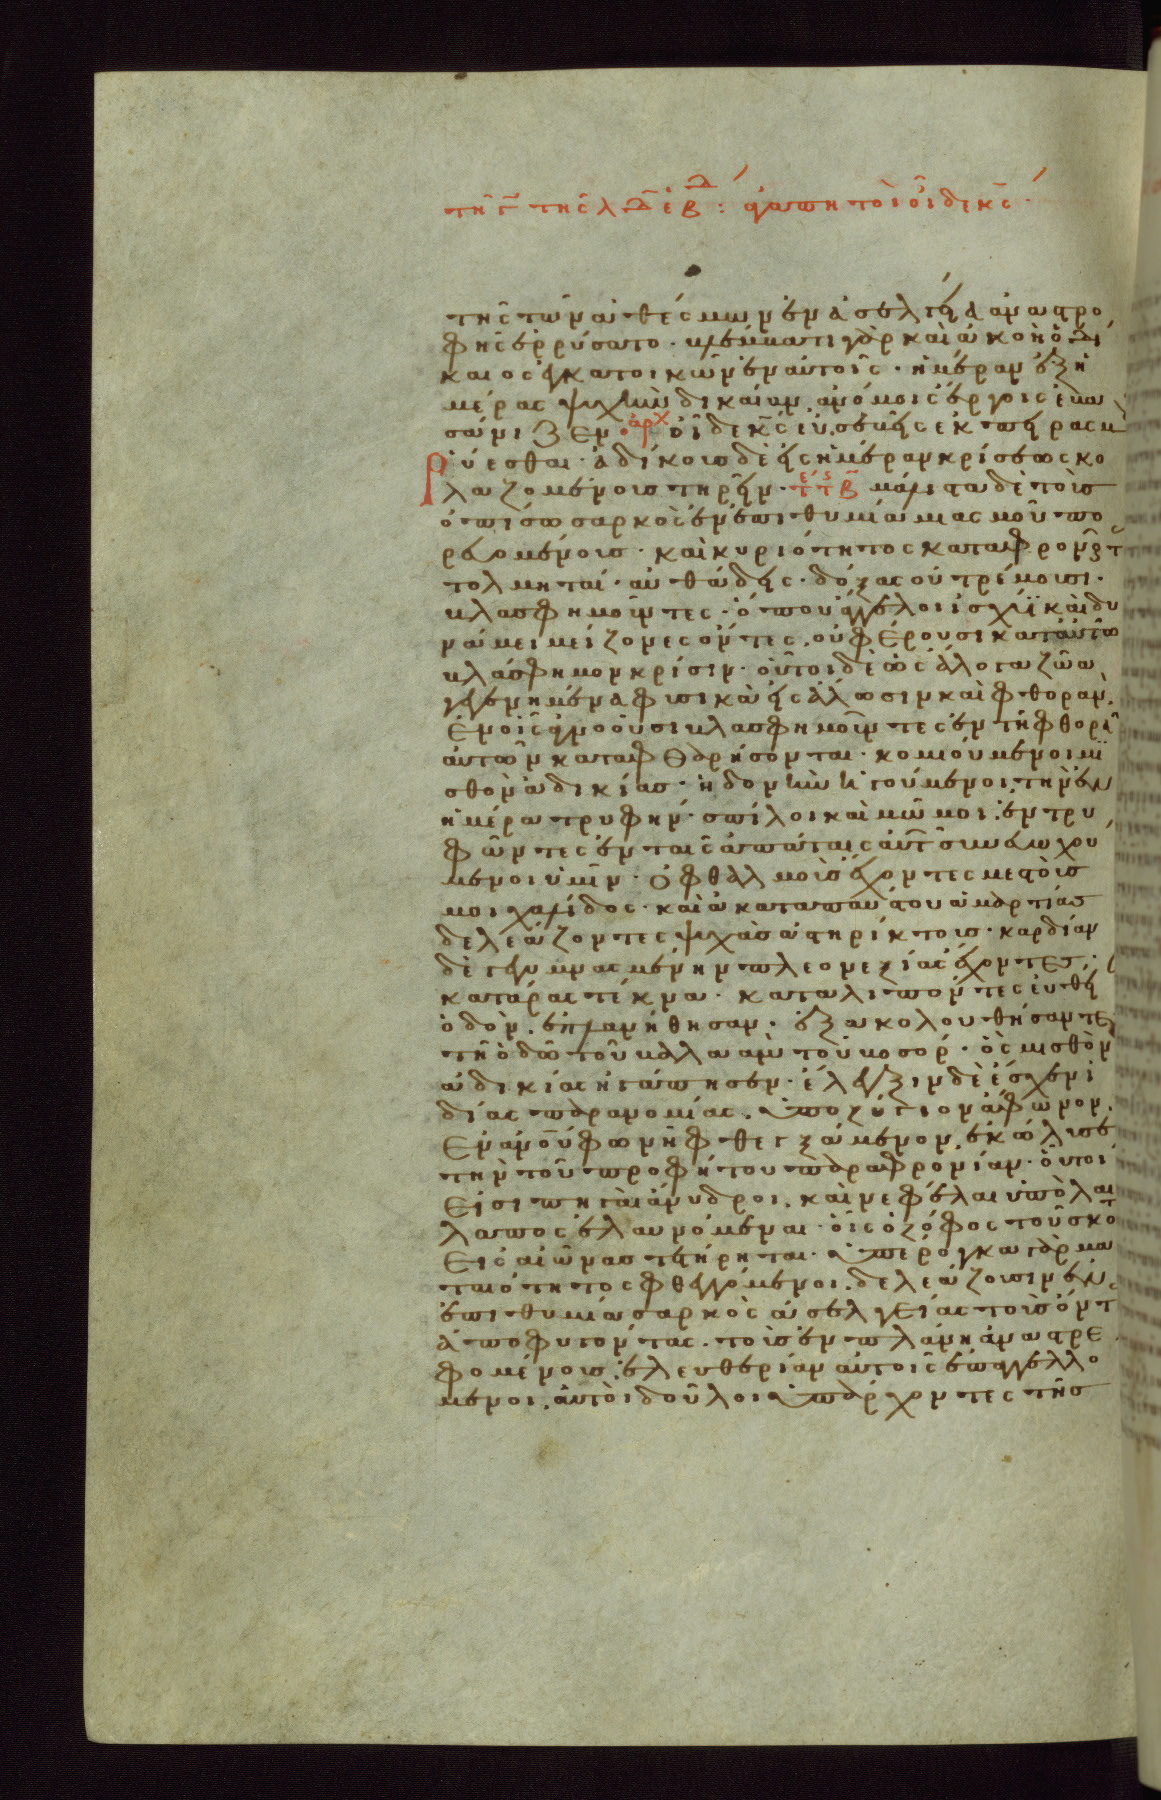 τῆς τῶν ἀθέσμων ἐν ἀσελγεία ἀναστρο
φῆς ἐρρύσατο· βλέμματι γὰρ καὶ ἀκοῆ ὁ δί
καιος ἐγκατοικῶν ἐν αὐτοῖς· ἡμέραν ἐξ ἡ
μέρας ψυχὴν δικαίαν ἀνόμοις ἔργοις ἐβα
σάνιζεν· ἀρχ οἶδε κς εὐσεβεῖς ἐκ πείρας
ῥύεσθαι· ἀδίκους δὲ εἰς ἡμέραν κρίσεως κο
λαζομένους τηρεῖν· μάλιστα δὲ τοὺς
ὀπίσω σαρκὸς ἐν ἐπιθυμία μιασμοῦ πο
ρευομένους· καὶ κυριότητος καταφρονοῦντ
τολμηταί· αὐθάδεις· δόξας οὐ τρέμουσι·
βλασφημοῦντες· ὅπου ἄγγελοι ἰσχύϊ καὶ δυ
νάμει μείζονες ὄντες, οὐ φέρουσι κατ αὐτῶ
βλάσφημον κρίσιν· οὗτοι δὲ ὡς ἄλογα ζῶα
γεγενημένα φυσικὰ εἰς ἅλωσιν καὶ φθοράν.
ἐν οἷς ἀγνοοῦσι βλασφημοῦντες ἐν τῆ φθορᾶ
αὐτῶν καταφθαρήσονται· κομιούμενοι μι
σθὸν ἀδικίας· ἡδονὴν ἡγούμενοι τὴν ἐν
ἡμέρα τρυφήν· σπίλοι καὶ μῶμοι· ἐντρυ
φῶντες ἐν ταῖς ἀπάταις αὐτ συνευωχού
μενοι ὑμῖν· ὀφθαλμοὺς ἔχοντες μεστοὺς
μοιχαλίδος· καὶ ἀκαταπαύστου ἁμαρτίας
δελεάζοντες ψυχὰς ἀστηρίκτους· καρδίαν
δὲ γεγυμνασμένην πλεονεξίας ἔχοντες·
κατάρας τέκνα· καταλιπόντες εὐθεῖ
ὁδόν. ἐπλανήθησαν· ἐξακολουθήσαντες
τῆ ὁδῶ τοῦ βαλαὰμ τοῦ βοσόρ· ὃς μισθὸν
ἀδικίας ἠγάπησεν· ἔλεγξιν δὲ ἔσχεν ἰ
δίας παρανομίας. ὑποζύγιον ἄφωνον.
ἐν ἀνοῦ φωνῆ φθεγξάμενον, ἐκώλυσε
τὴν τοῦ προφήτου παραφρονίαν· οὗτοί
εἰσι πηγαὶ ἄνυδροι. καὶ νεφέλαι ὑπὸ λαί
λαπος ἐλαυνόμεναι· οἷς ὁ ζόφος τοῦ σκότ
εἰς αἰῶνας τετήρηται· ὑπέρογκα γὰρ μα
ταιότητος φθεγγόμενοι. δελεάζουσιν ἐν
ἐπιθυμία σαρκὸς ἀσελγείας τοὺς ὄντ
ἀποφυγόντας. τοὺς ἐν πλάνη ἀναστρε
φομένους. ἐλευθερίαν αὐτοῖς ἐπαγγελλό
μενοι. αὐτοὶ δοῦλοι ὑπάρχοντες τῆς